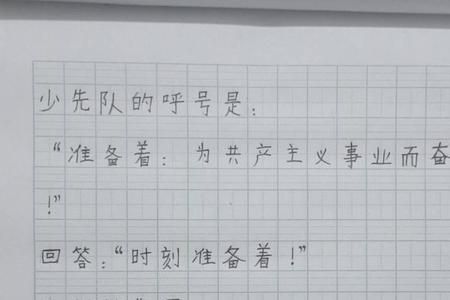 少先队的呼号是:
“准备着: 为共产主义事业而奋
!”
回答:“时刻准备着!”